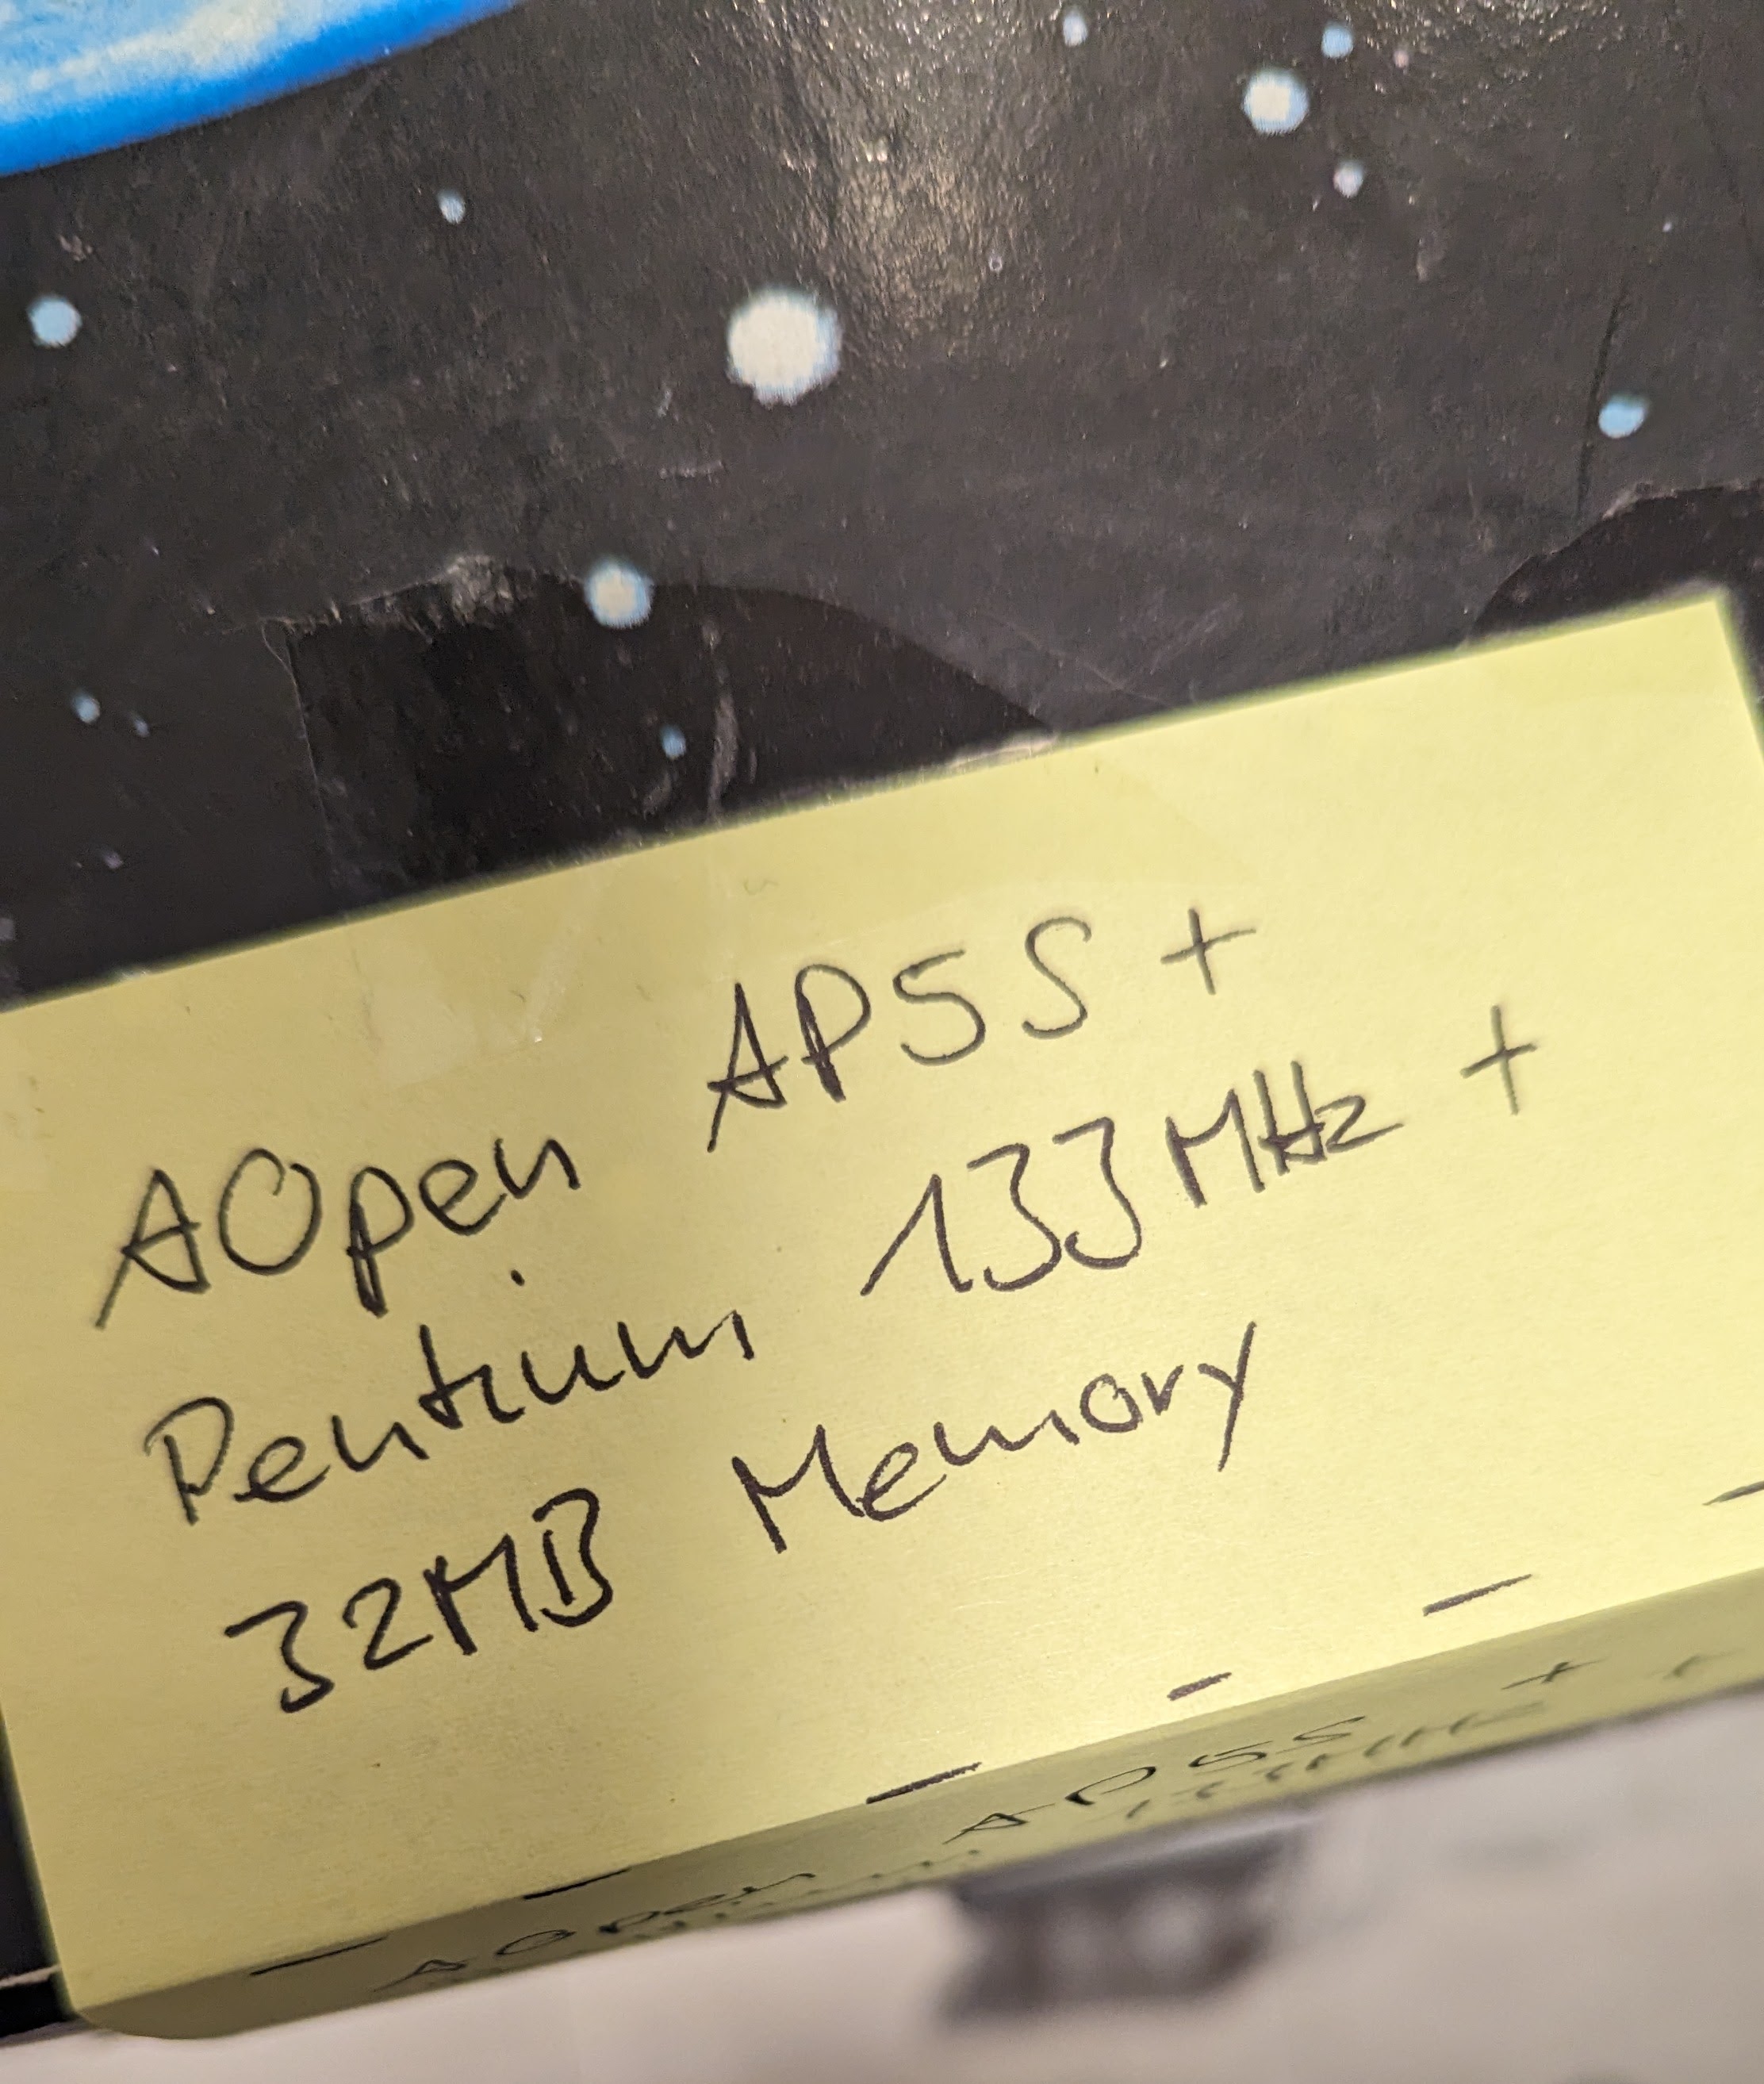 AOpen AP5S +
Pentium 133MHz +
32MB Memory
AOpen AP5S +